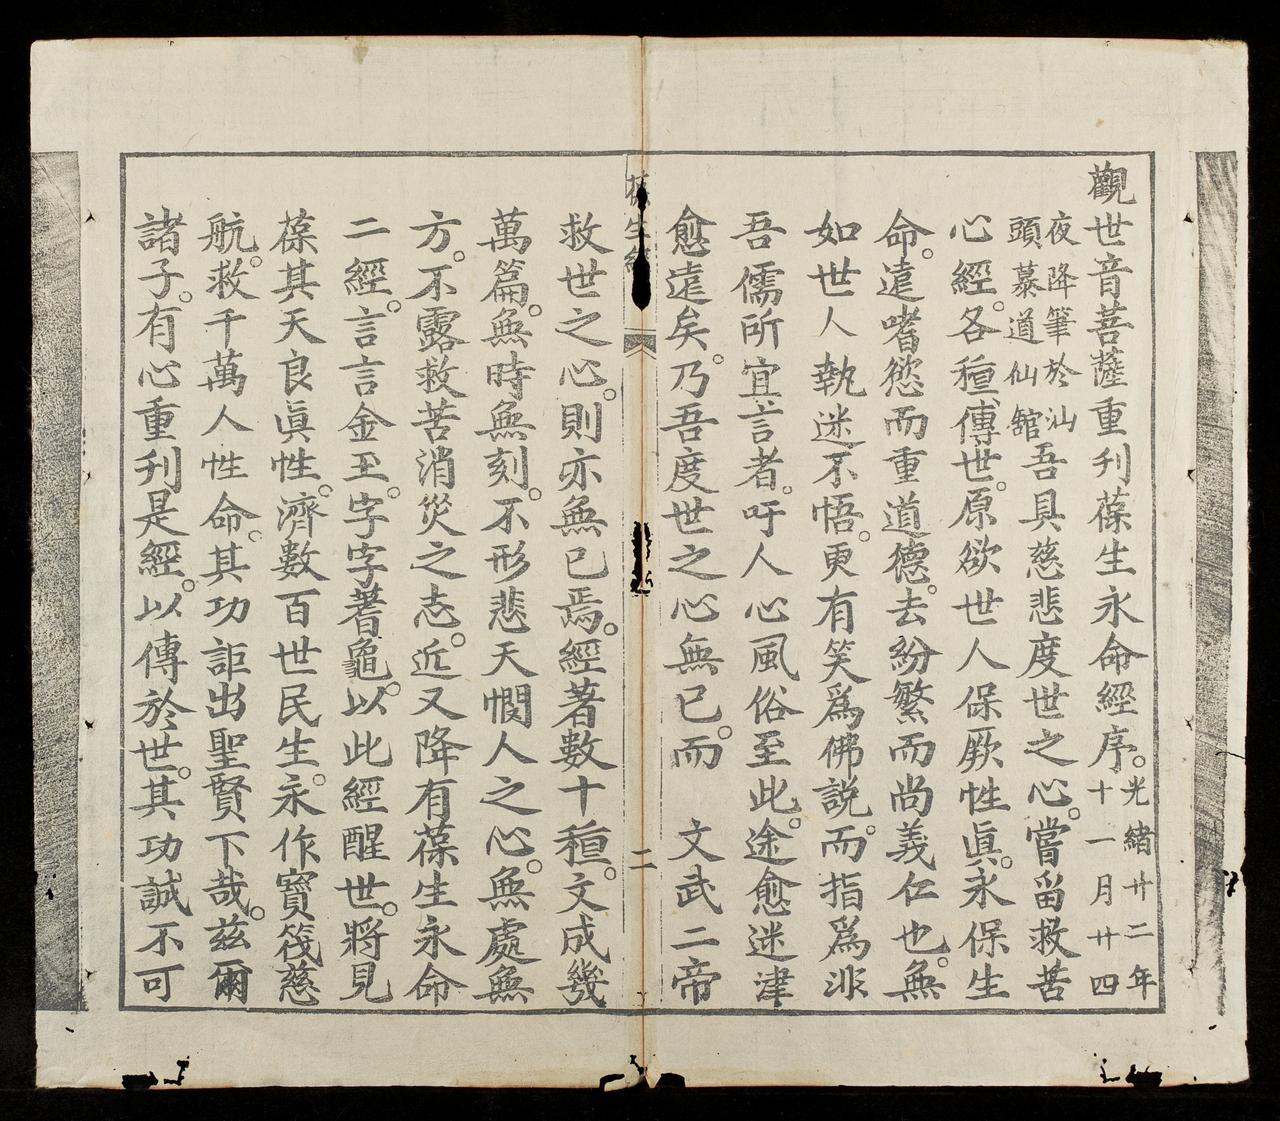 觀世音菩薩重刊葆生永命經序。光緒廿二年十一月廿四
夜降筆於汕頭慕道仙舘吾具慈悲度世之心。嘗留救苦
心經。各種傳世。原欲世人保厥性眞。永保生
命。遠嗜慾而重道德。去紛繁而尚義仁也。無
如世人執迷不悟。更有笑爲佛說。而指爲非
吾儒所宜言者。吁人心風俗至此。途愈迷津
愈遠矣。乃吾度世之心無已。而 文武二帝
生經
二
救世之心。則亦無已焉。經著數十種。文成幾
萬篇。無時無刻。不形悲天憫人之心。無處無
方。不露救苦消災之志。近又降有葆生永命
二經。言言金玉。字字蓍龜。以此經醒世。將見
葆其天良眞性。濟數百世民生。永作寶筏慈
航。救千萬人性命。其功詎出聖賢下哉。茲爾
諸子。有心重刊是經。以傳於世。其功誠不可